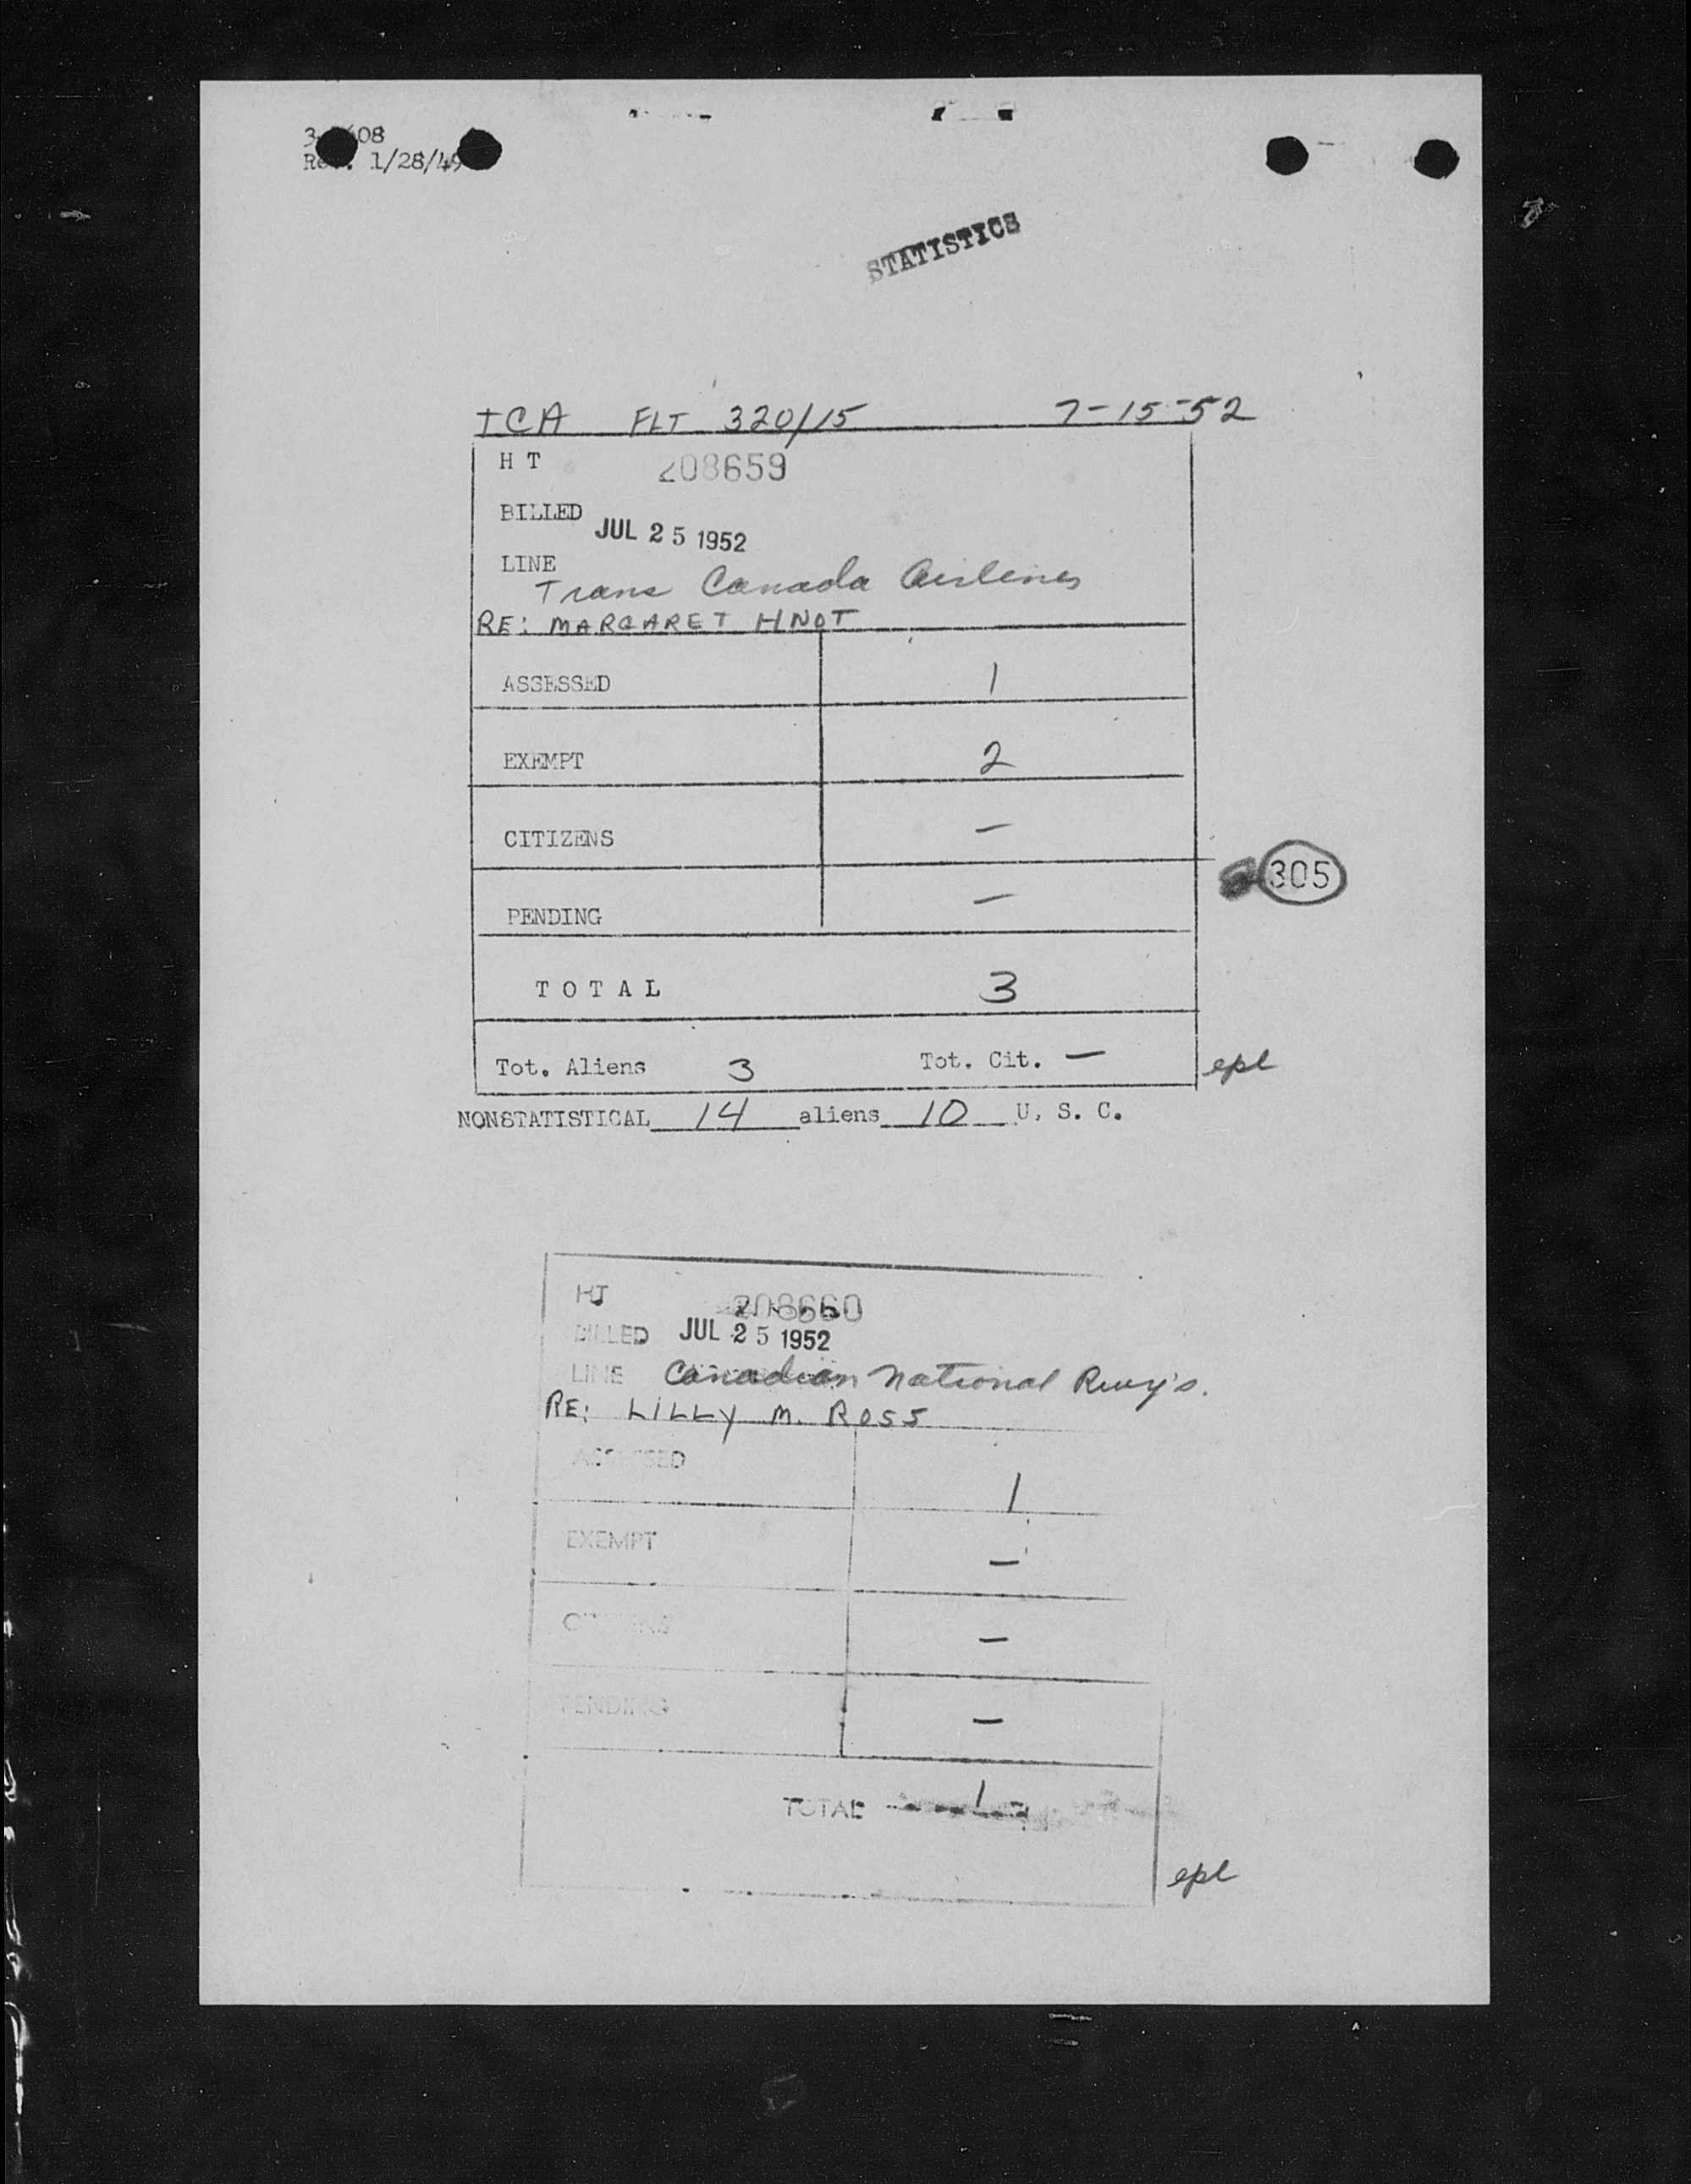 08
1/28/49
STATISTICS
TCA FLT 320/15 7-15-52
H T 208659
BILLED JUL 25 1952
LINE
Trans Canada Airlines
RE: MARGARET HNOT
ASSESSED 1
EXEMPT 2
CITIZENS —
305
PENDING —
T O T A L 3
Tot. Aliens 3 Tot. Cit. —
epl
NONSTATISTICAL 14 aliens 10 U. S. C.
HT 208660
BILLED JUL 25 1952
LINE Canadian National Rwy's.
RE: LILLY M. ROSS
ASSESSED 1
EXEMPT —
CITIZENS —
PENDING —
TOTAL 1
epl